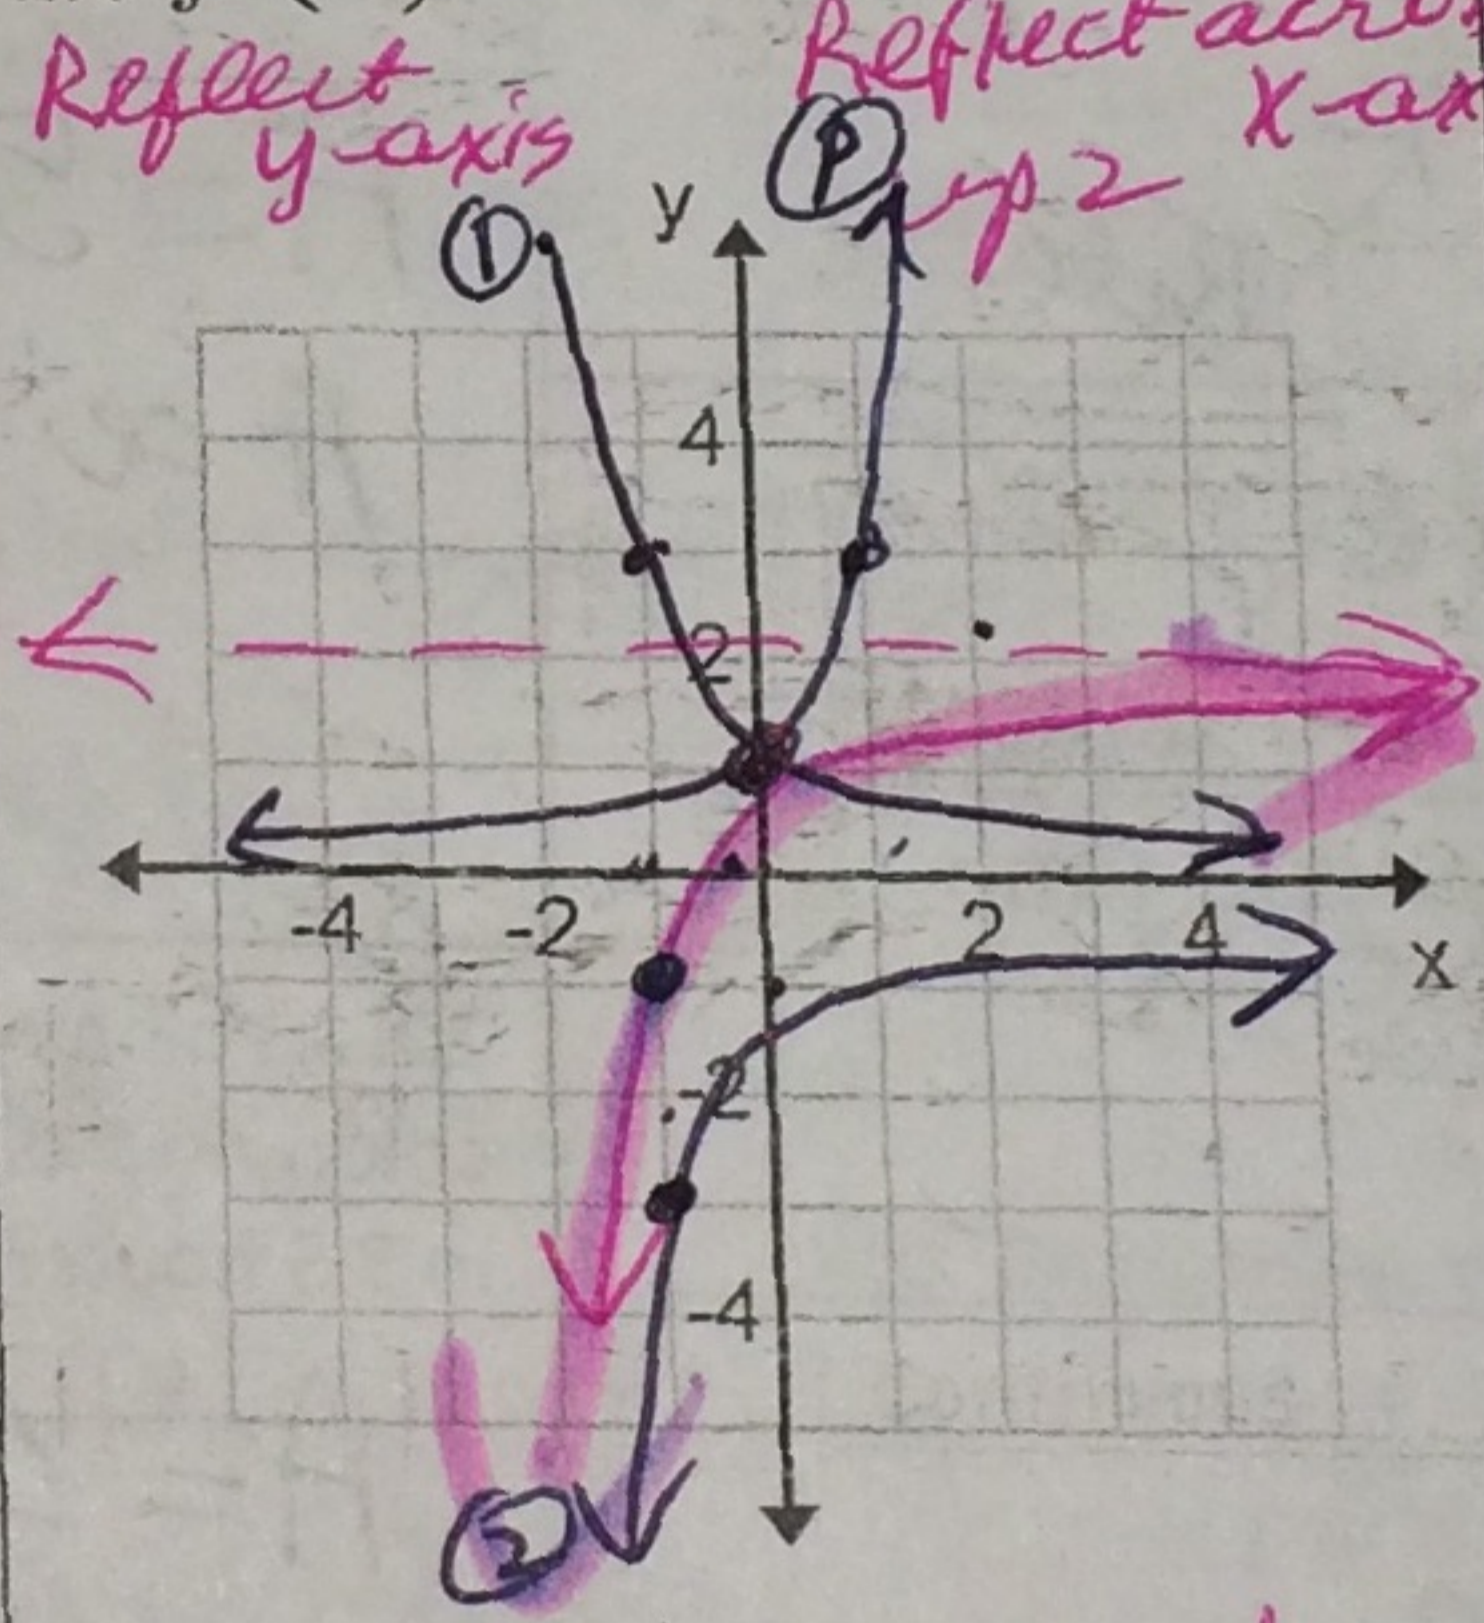 Reflect
y-axis
Reflect across
x-ax
up 2
P
1
y
4
2
-4
-2
2
4
x
-2
-4
2